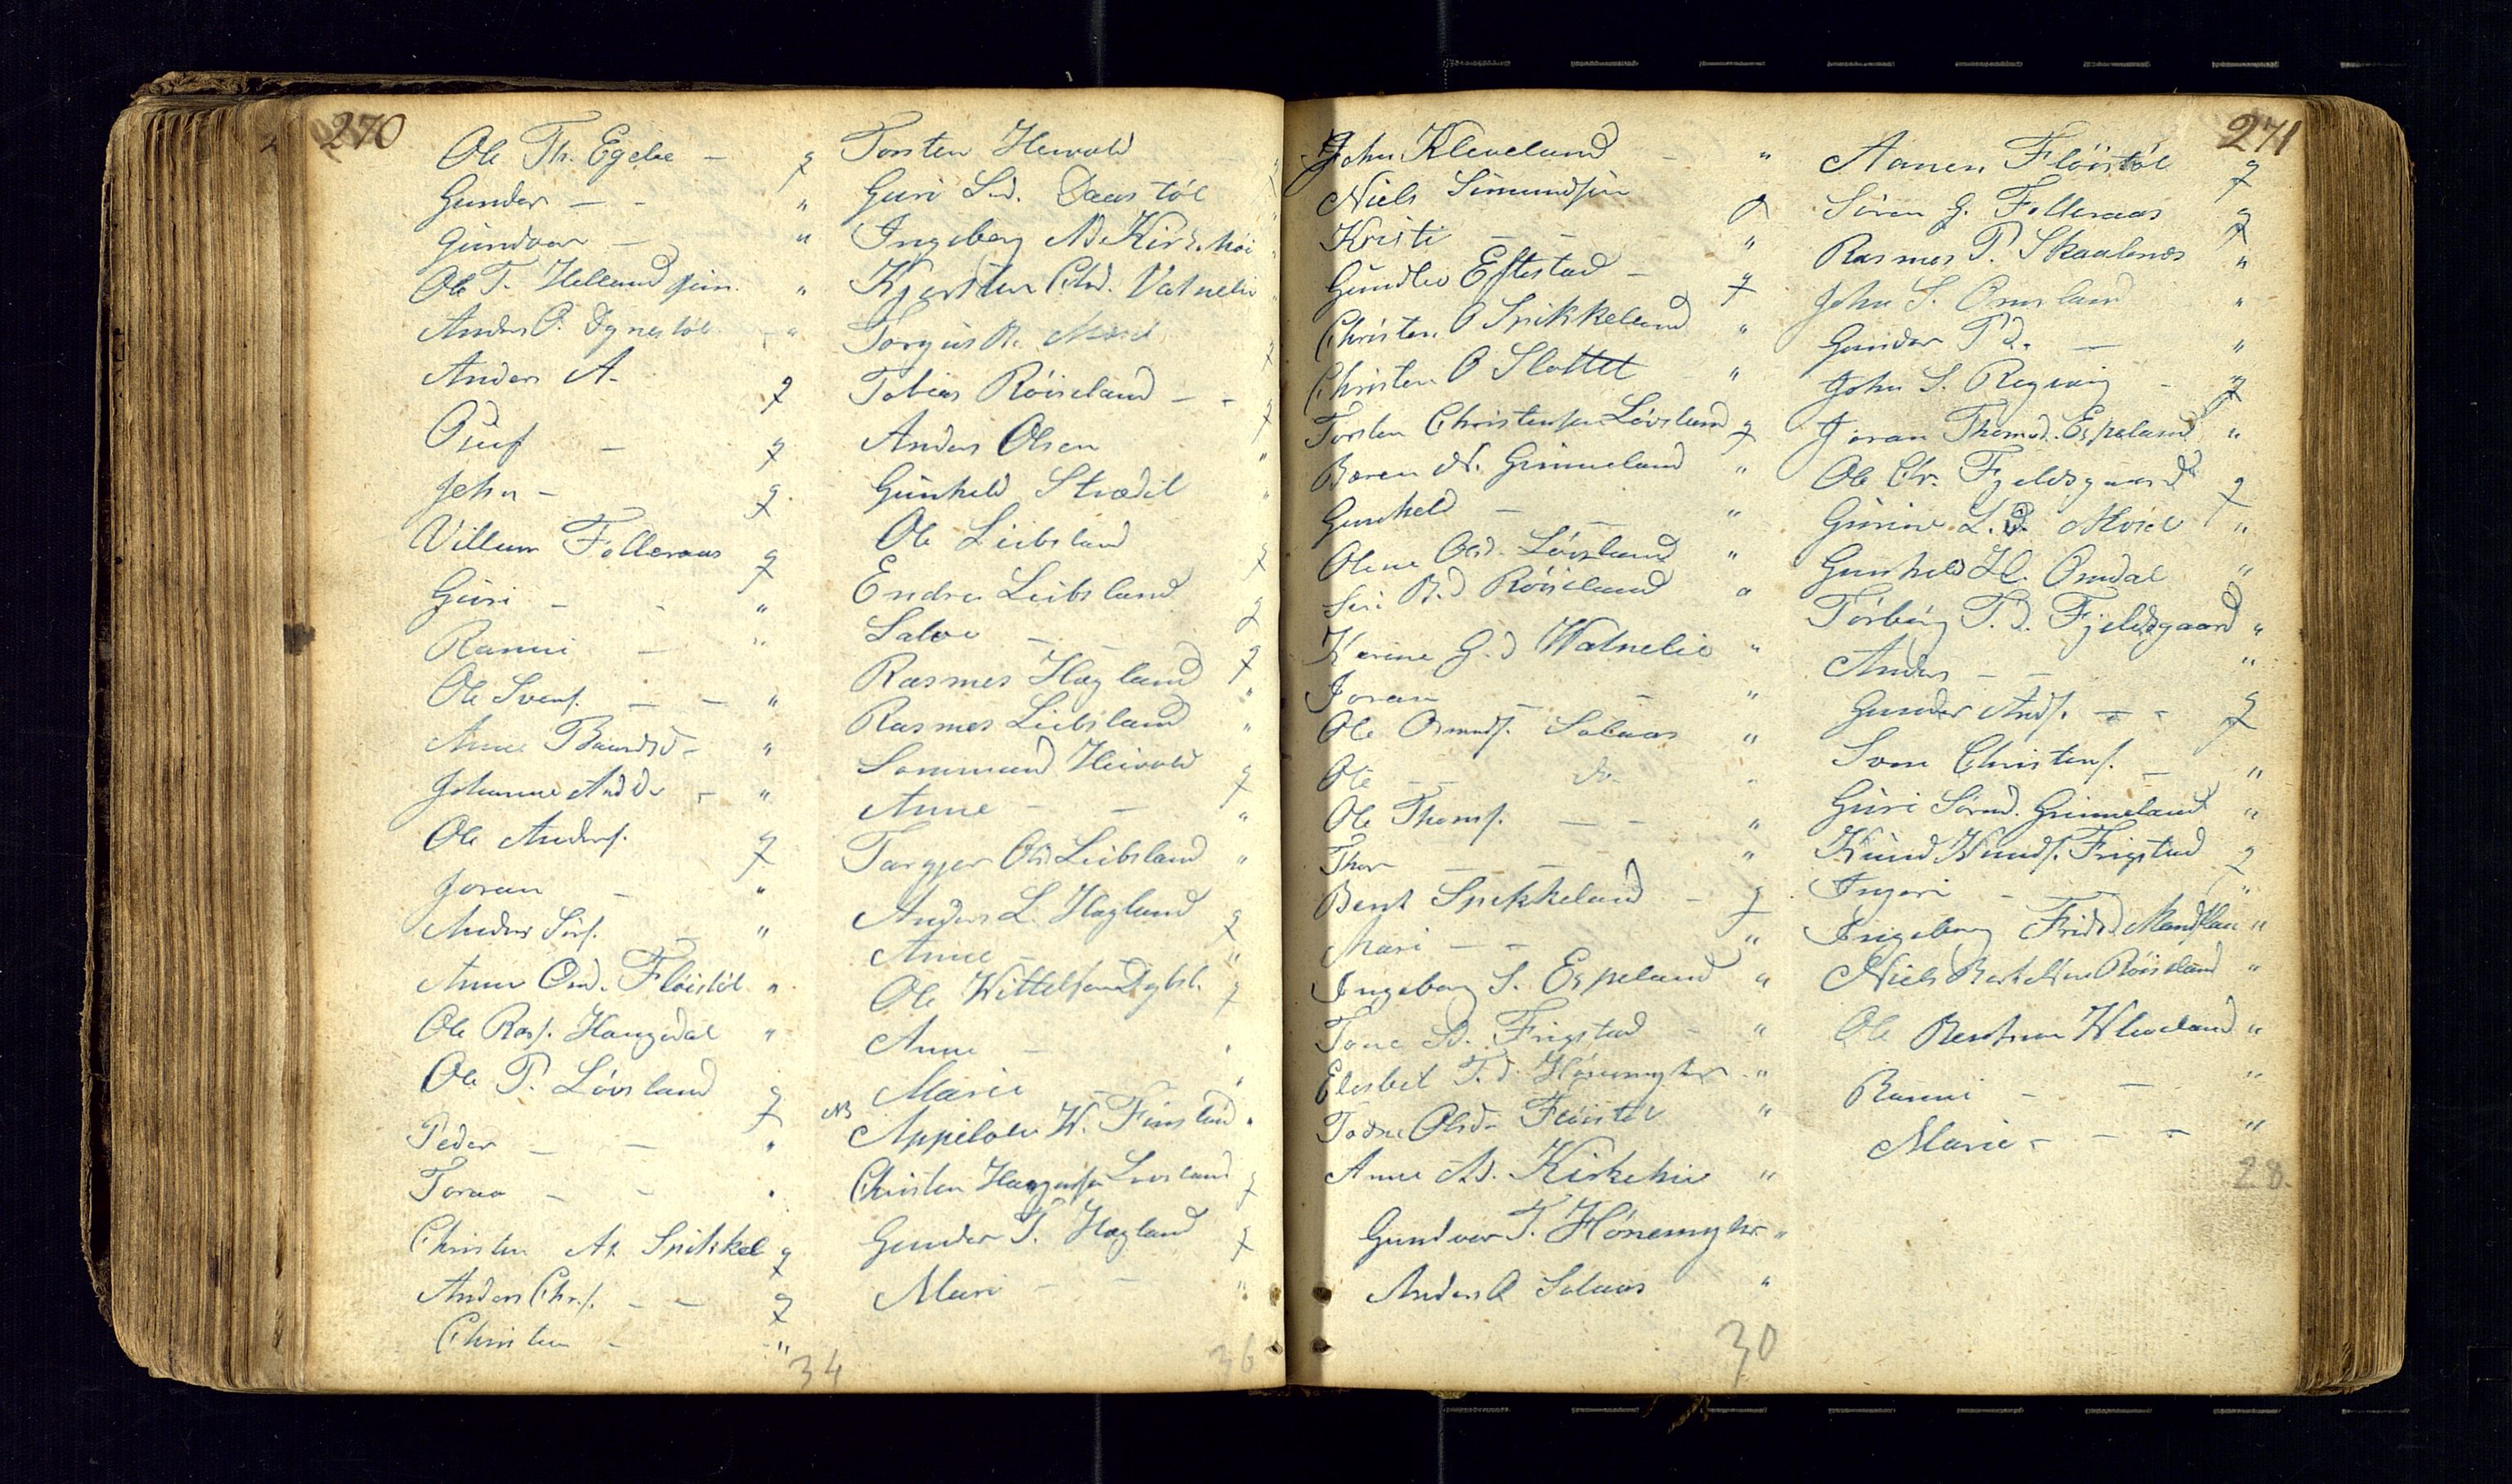 270
Ole Th. Egelie — g
Gunder — - "
Gundvor — "
Ole T. Helland jun. "
Anders O. Dynestøl - "
Anders A. g
Oluf — g
John - g
Villum Folleraas g
Guri - - "
Ranni - "
Ole Svens. - - "
Anne Baardsd - "
Johanne And.d. - "
Ole Anders. g
Joran - "
Anders Sørs. - "
Anne Omd. Fløistøl "
Ole Ras. Haugedal "
Ole P. Løvsland g
Peder - - "
Torao - - "
Christen At. Spikkel g
Anders Chrs. - - g
Christen - "
34
Torsten Heivold
Guri S.d. Daastøl
Ingeborg N.d. Kirkehøi
Kjersten Chd. Vatnelie
Torgus R.
Tobias Røiseland - -
Anders Olsen
Gunhild Strædet
Ole Liibsland g
Endre Liibsland g
Salve - - g
Rasmus Hægland "
Rasmus Liibsland "
Sommund Heivold g
Anne - - "
Targjer Old. Liibsland "
Anders L. Hægland g
Anne - "
Ole Kittelsen Dybst. g
Anne - "
Marie - "
NB Appilone K. Finsland "
Christen Haagensen Løvsland g
Gunder T. Hægland g
Mari - - "
36
John Kleveland - "
Niels Simundsen
Kristi - - "
Gundlev Eftestad - g
Christen O Spikkeland "
Christen O Slottet "
Torsten Christensen Løvsland g
Boren N. Grimeland "
Gunhild - - "
Olene Old. Løvsland "
Siri B.d Røiseland "
Karine G.d Watnelie "
Joran - "
Ole Osmuds. Solaas "
Ole - - do "
Ole Thoms. - - "
Thor - - "
Bent Spikkeland - g
Mari - - "
Ingeborg S. Espeland "
Tone S.d. Frigstad - "
Elesbet T.d. Hønemyhr "
Todne Olsd. Fløistøl "
Anne A.d. Kirkehøi "
Gundvor T. Hønemyhr "
Anders O Solaas "
30
271
Aanen Fløistøl g
Søren G. Folleraas g
Rasmus P. Skaalenes "
John S. Omsland "
Gunder P.d. - "
John S. Røgevig - g
Joran Thomd. Espeland "
Ole Chr. Fjeldsgaard g
Gurine L.D. "
Gunhild H. Omdal "
Torborg T.d. Fjeldsgaard "
Anders - - "
Gunder Ands. - - g
Sven Christens. - "
Guri Sørnd. Grimeland "
Knud Knuds. Frigstad g
Ingeri - "
Ingeborg Fridsd. Mandflaa "
Niels Bertelsen Røiseland "
Ole Bentsen Kleveland "
Ranni - - "
Marie - - - "
28.